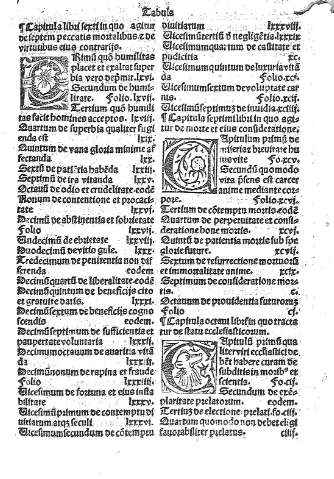 Tabula
¶Capitula libri sexti in quo agitur
de septem peccatis mortalibus. & de
virtutibus eius contrarijs.
Primū quod humilitas
placet et exaltat super
bia vero deprimit. lxvi.
Secundum de humili
tate. Folio. lxvii.
Tertium quod humilitas
facit homines acceptos. lxviii.
Quartum de superbia qualiter fugi
enda est lxix.
Quintum de vana gloria minime af
fectanda lxx.
Sextū de patiētia habēda lxxii.
Septimū de ira vitanda lxxv.
Octauū de odio et crudelitate. eodē
Nonum de contentione et procaci
tate lxxvi.
Decimū de abstinentia et sobrietate
Folio lxxvii.
Undecimū de ebrietate lxxviii.
Duodecimū de vitio gule. lxxx.
Tredecimum de penitentia non dif
ferenda eodem
Decimūquartū de liberalitate. eodē
Decimūquintum de beneficijs cito
et gratuite datis. lxxxi.
Decimūsextum de beneficijs cogno
scendis eodem.
Decimūseptimum de sufficientia et
paupertate voluntaria lxxxii.
Decimumoctauum de auaritia vitā
da
Decimūnonum de rapina et fraude
Folio lxxxiiii.
Uicesimum de fortuna et eius insta
bilitate lxxxv.
Uicesimūprimum de contemptu di
uitiarum atqs seculi lxxxvi.
Uicesimumsecundum de cōtemptu
diuitiarum lxxxviii.
Uicesimūtertiū & negligētia. lxxxix
Uicesimumquartum de castitate et
pudicitia xc.
Uicesimumquintum de luxuria
Folio. xci.
Uicesimumsextum de voluptate car
nis. Folio. xcii.
Uicesimūseptimuz de inuidia. xciiii.
¶Capitula septimi libri in quo agi
tur de morte et eius consideratione.
Capitulum primū de
miserias breuitate hu
ius vite Fo. xcv.
Secundū quo modo
vita pñsens est carcer
anime mediante corpo
re. Folio. xcvi.
Tertium de cōtemptu mortis. eodē
Quartum de perpetuitate et consi
deratione bone mortis. xcvi.
Quintū de patientia mortis sub spe
glorie future. xcvii.
Sextum de resurrectione mortuorū
et immortalitate anime. xcix.
Septimum de consideratione mor
tis. c.
Octauum de prouidentia futuroruz
Folio ci.
¶Capitula octaui libri in quo tracta
tur de statu ecclesiasticorum.
Capitulū primū qua
liter viri ecclesiastici de
bēt habere curam de
subditis in morib9 et
scientia. Fo. cii.
Secundum de exē
plaritate prelatorum. eodem
Tertiuz de electione. prelati. fo. ciii.
Quartum quomodo non debet eligi
fauorabiliter prelatus. ciiii.